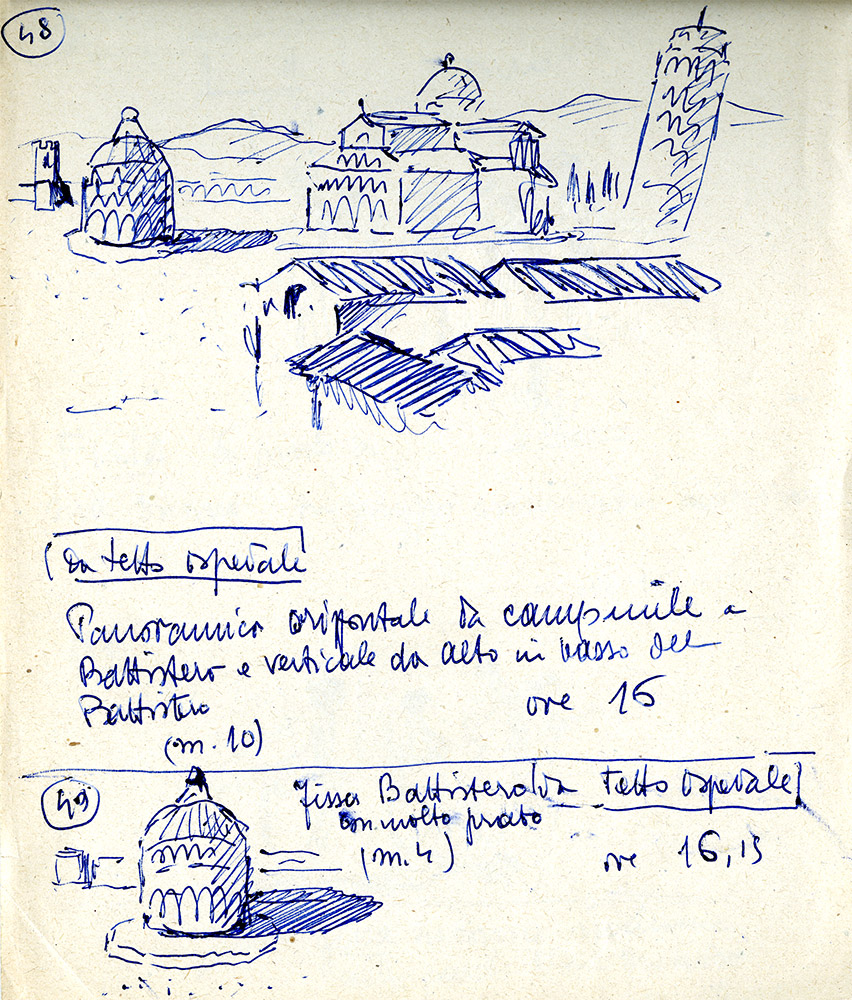 48
Da tetto ospedale
Panoramica orizzontale da campanile a
Battistero e verticale da alto in basso del
Battistero
ore 16
(m. 10)
49
Fissa Battistero da Tetto Ospedale
con molto prato
(m. 4)
ore 16,15